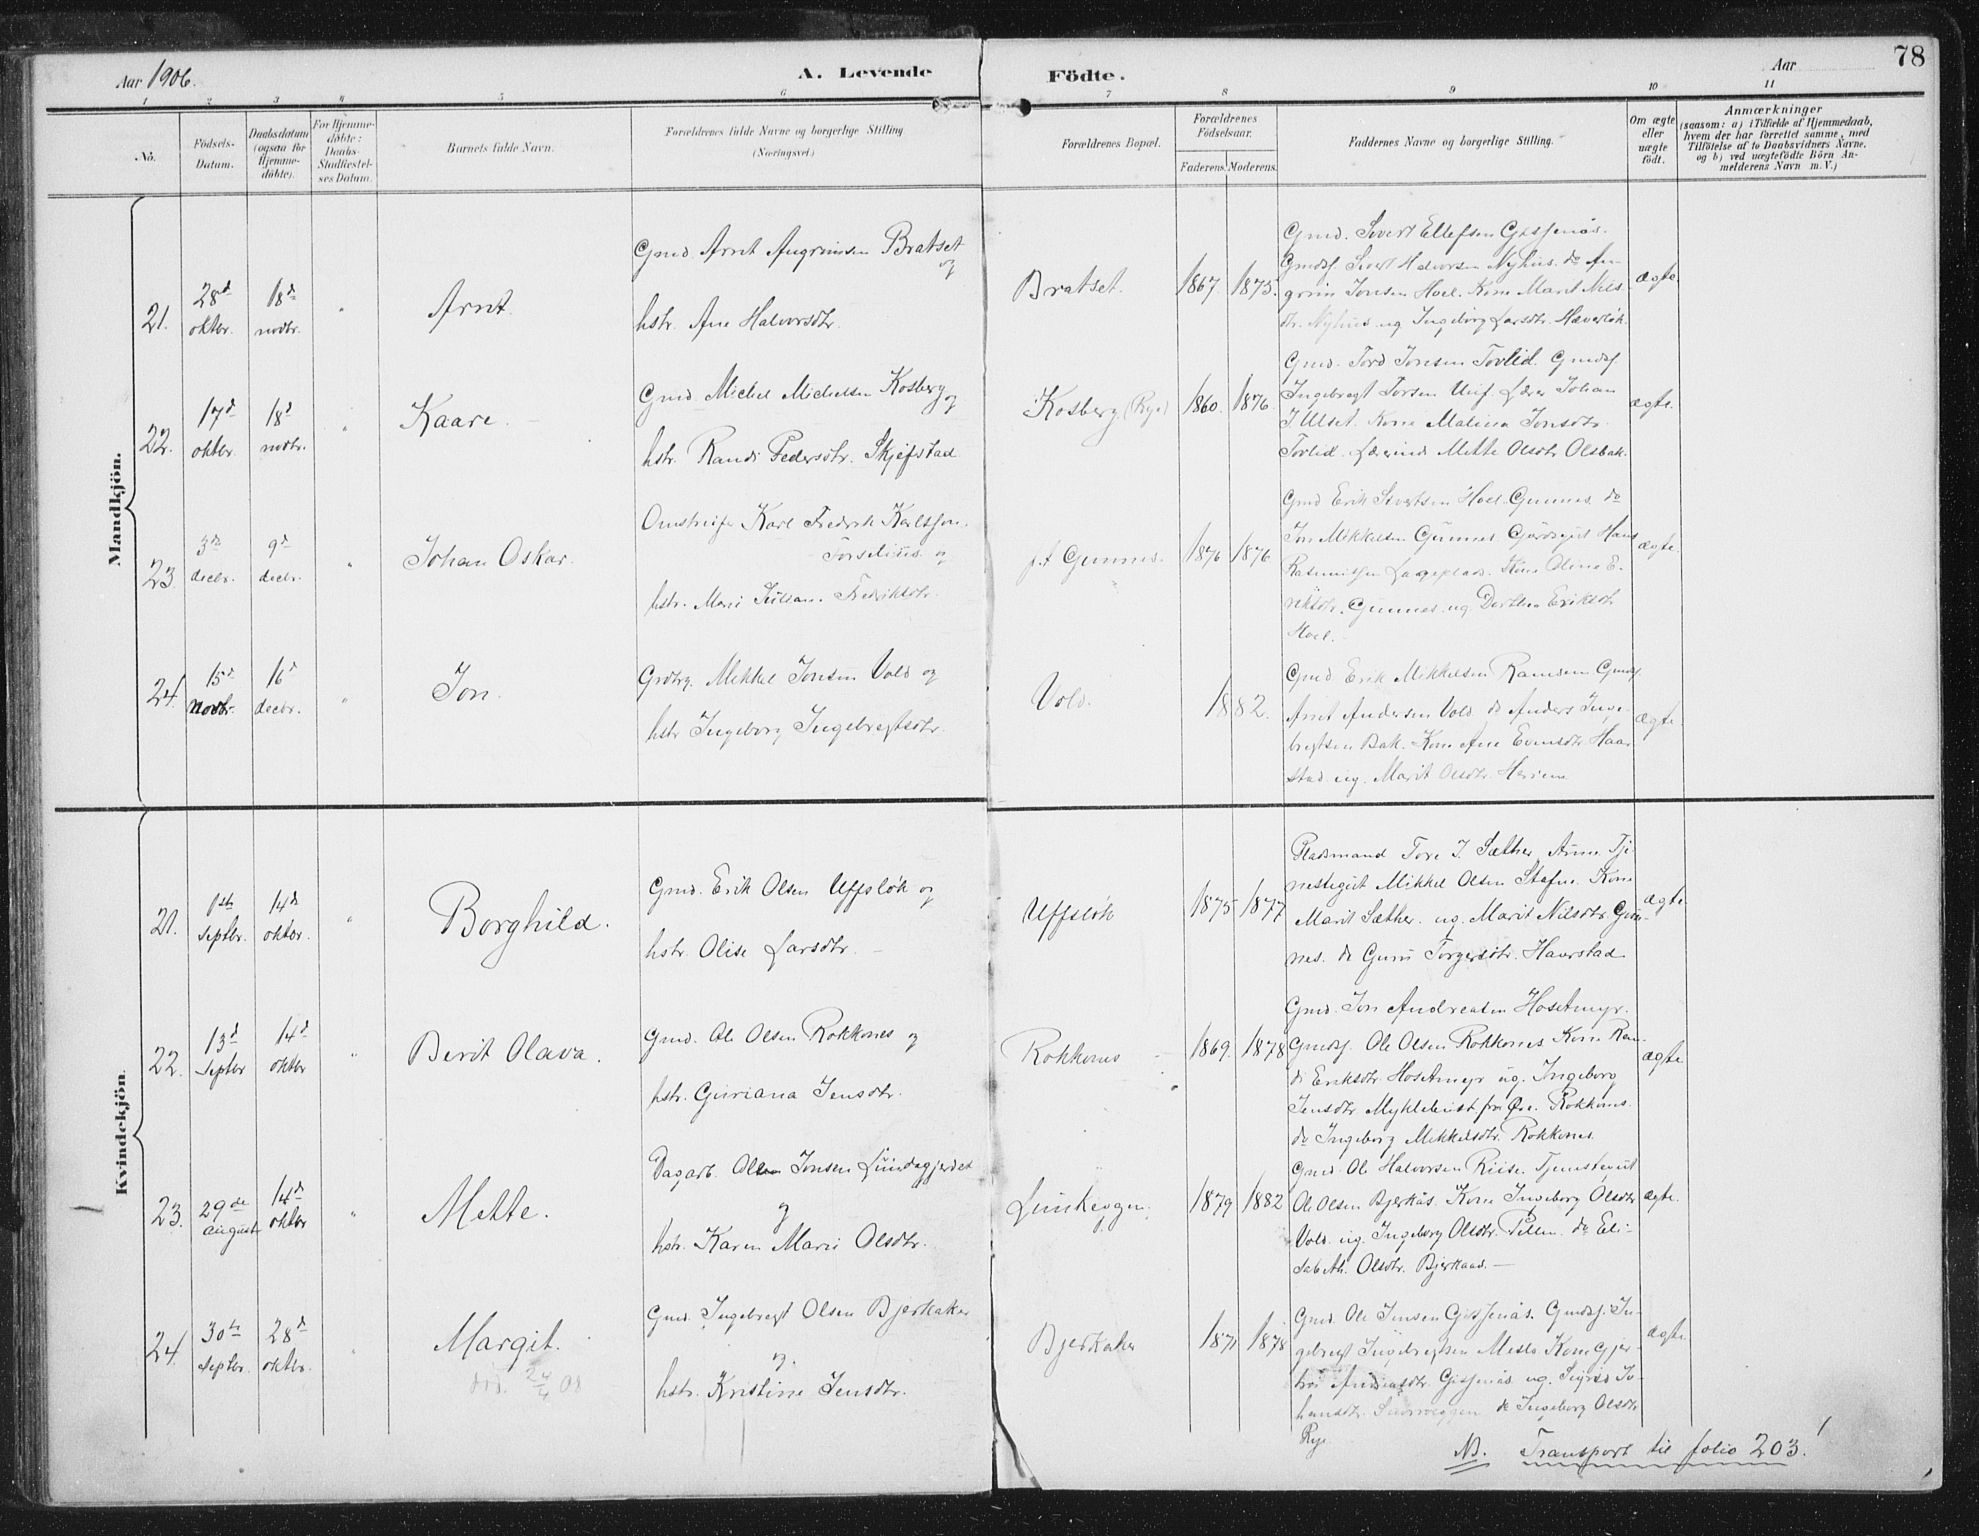 78
Aar 1906.
A. Levende Födte.
Aar
1 2 3 4 5 6 7 8 9 10 11
No.
Födsels-
Datum.
Daabsdatum
(ogsaa for
Hjemme-
döbte).
For Hjemme-
döbte:
Daabs-
Stadfæstel-
ses Datum.
Barnets fulde Navn.
Forældrenes fulde Navne og borgerlige Stilling
(Næringsvei.)
Forældrenes Bopæl.
Forældrenes
Födselsaar.
Faderens. Moderens.
Faddernes Navne og borgerlige Stilling.
Om ægte
eller
uægte
födt.
Anmærkninger
(saasom: a) i Tilfælde af Hjemmedaab,
hvem der har forrettet samme, med
Tilföielse af to Daabsvidners Navne.
og b) ved uægtefödte Börn An-
melderens Navn m. V.)
Mandkjön.
21.
28d
oktbr.
18de
novbr.
"
Arnt.
Gmd. Arnt Angrimsen Bratset
og
hstr. Ane Halvorsdtr.
Bratset.
1867. 1875.
Gmd. Sivert Ellefsen Gisjenås.
Gmdsf. Sivert Halvorsen Nyhus. do An-
grim Jonsen Hoel. Kone Marit Nils-
dtr. Nyhus og Ingeborg Larsdtr. Hæverlök.
ægte.
22.
17d
oktbr.
18d
novbr.
"
Kaare.
Gmd. Michel Michelsen Kosberg
og
hstr. Randi Pedersdtr. Skjefstad
Kosberg (Rye)
1860. 1876.
Gmd. Tord Jonsen Tovlid. Gmdsf.
Ingebregt Torsen Uif. Lærer Johan
J. Ulset. Kone Malena Jonsdtr.
Tovlid. Lærerinde Mette Olsdtr Olsbak.
ægte.
23.
3de
decbr.
9d
decbr.
"
Johan Oskar.
Omstreifer Karl Fredrik Karlsson.
Torselius. og
hstr. Mari Julian. Fedriksdtr.
p.t Gunnes.
1876 1876
Gmd Erik Sivertsen Hoel. Gunnes. do
Jon Mikkelsen Gunnes. Gårdsgut Hans
Rasmussen Lageplads. Kone Oline E-
riksdtr. Gunnes. og. Dorthea Eriksdtr
Hoel.
ægte.
24.
15d
Novbr.
16d
decbr.
"
Jon.
Grdbrg. Mikkel Jonsen Vold og
hstr Ingeborg Ingebregtsdtr.
Vold.
1882.
Gmd Erik Mikkelsen Ramsem Gmdsf.
Arnt Andersen Vold. do Anders Inge-
bregtsen Bak. Kone Ane Evensdtr. Haar-
stad. og. Marit Olsdtr. Heriem
ægte.
Kvindekjön.
21.
1ste
septbr.
14d
oktbr.
"
Borghild.
Gmd. Erik Olsen Uffslök og
hstr. Olise Larsdtr.
Uffslök
1875 1877
Pladsmand Tore J. Sæther Anne. Tje-
nestegut Mikkel Olsen Stafne. Kone
Marit Sæther. og. Marit Nilsdtr. Gun-
nes. do Guru Torgersdtr. Haarstad
ægte
22.
13d
septbr
14d
oktbr
"
Berit Olava.
Gmd. Ole Olsen Rokkones og
hstr. Guriana Jensdtr.
Rokkones
1869. 1878
Gmd. Jon Andreasen Hosetmyr.
Gmdsf. Ole Olsen Rokkones Kone Ran-
di Eriksdtr. Hosetmyr og. Ingeborg
Jensdtr Myklebust fra Øre. Rokkones.
do Ingeborg Mikkelsdtr. Rokkones.
ægte
23.
29de
august
14d
oktbr
"
Mette.
Dagarb. Ole Jonsen Lundagjerdet
og
hstr. Karen Marie Olsdtr.
1879 1882
Gmd. Ole Halvorsen Riise. Tjenstegut
Ole Olsen Bjerkås. Kone Ingeborg Olsdtr
Vold. og. Ingeborg Olsdtr. Tillem. do Eli-
sabeth. Olsdtr. Bjerkaas.
ægte.
24.
30te
septbr.
28d
oktbr.
"
Margit.
død. 24/4 08
Gmd. Ingebregt Olsen Bjerkaker
og.
hstr. Kristine Jensdtr.
Bjerkaker
1871 1878
Gmd. Ole Jensen Gisjenås. Gmdsf. In-
gebregt Ingebregtsen Mesla Kone Gjer-
trud Andreasdtr Gisjenås og. Sigrid Jo-
hansdtr. do Ingeborg Olsdtr
Rye
ægte.
NB. Transport til folio 203.